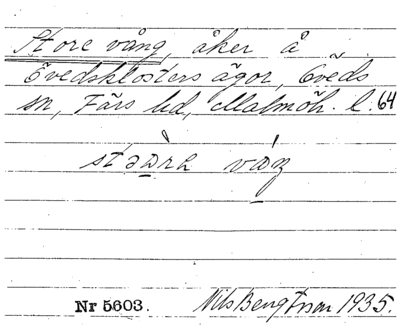 Store vång, åker å
Övedsklosters ägor, Öveds
sn, Färs hd, Malmöh. l. 64
våŋ
Nr 5603. Nils Bengtsson 1935.